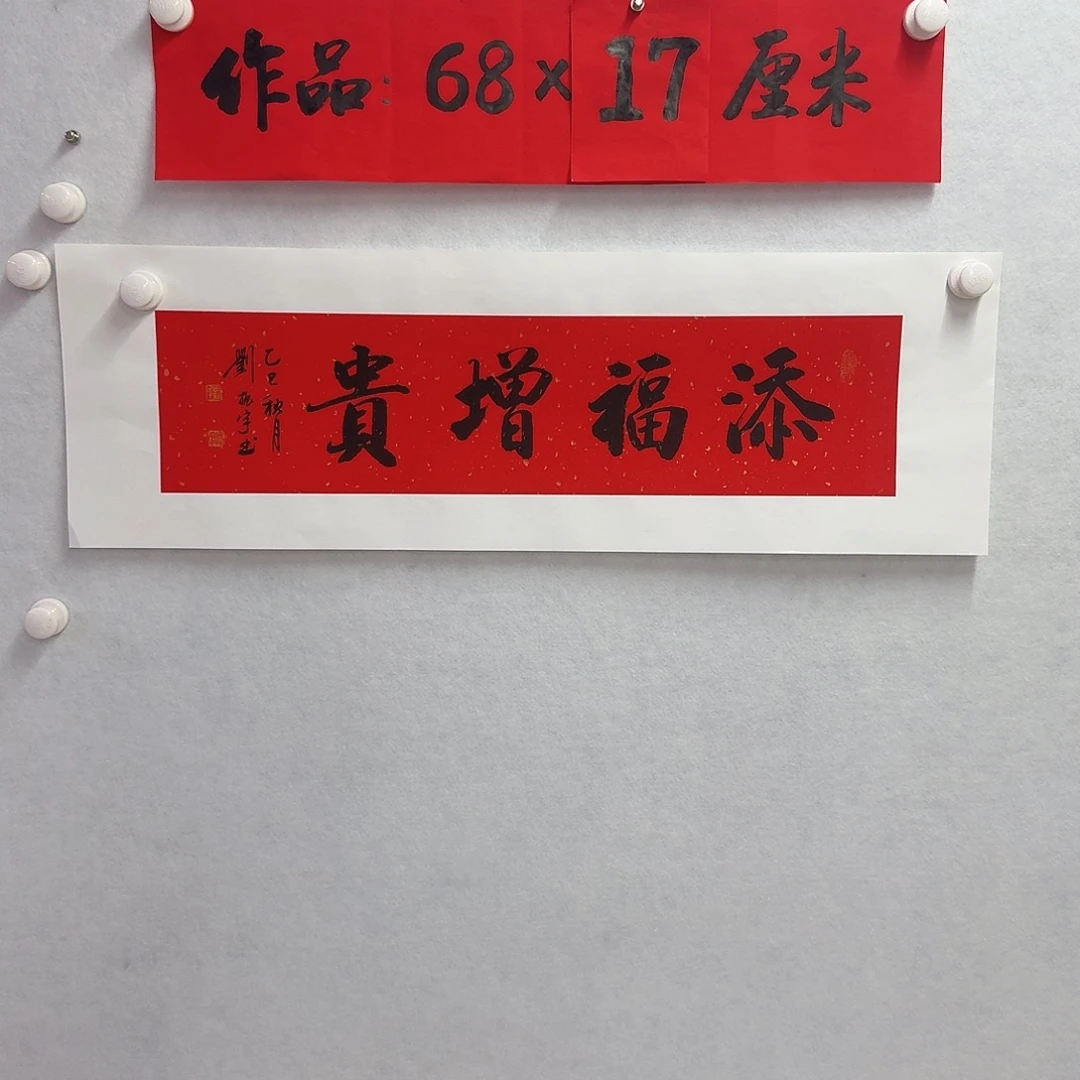 作品：68×17厘米
添福增貴
乙巳秋月
劉振宇书